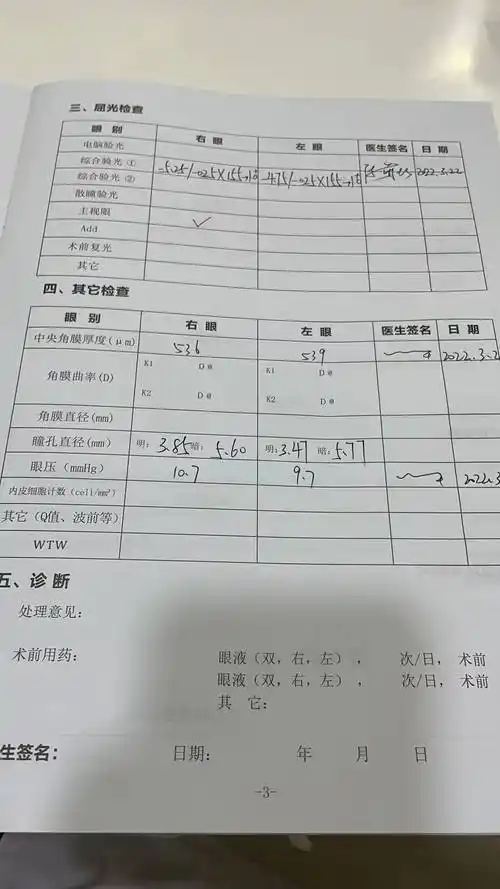 三、屈光检查
眼 别 右 眼 左 眼 医生签名 日 期
电脑验光
综合验光 ① -5.25/-0.25X155→1.0 -4.75/-0.25X155→1.0 2022.3.22
综合验光 ②
散瞳验光
主视眼 ✓
Add
术前复光
其它
四、其它检查
眼 别 右 眼 左 眼 医生签名 日 期
中央角膜厚度(μm) 536 539 2022.3.2
角膜曲率(D) K1 D@ K1 D@
K2 D@ K2 D@
角膜直径(mm)
瞳孔直径(mm) 明: 3.85 暗: 5.60 明: 3.47 暗: 5.77
眼压 (mmHg) 10.7 9.7 2022.3
内皮细胞计数 (cell/mm²)
其它(Q值、波前等)
WTW
五、诊 断
处理意见:
术前用药: 眼液(双,右,左) , 次/日, 术前
眼液(双,右,左) , 次/日, 术前
其 它:
生签名: 日期: 年 月 日
-3-